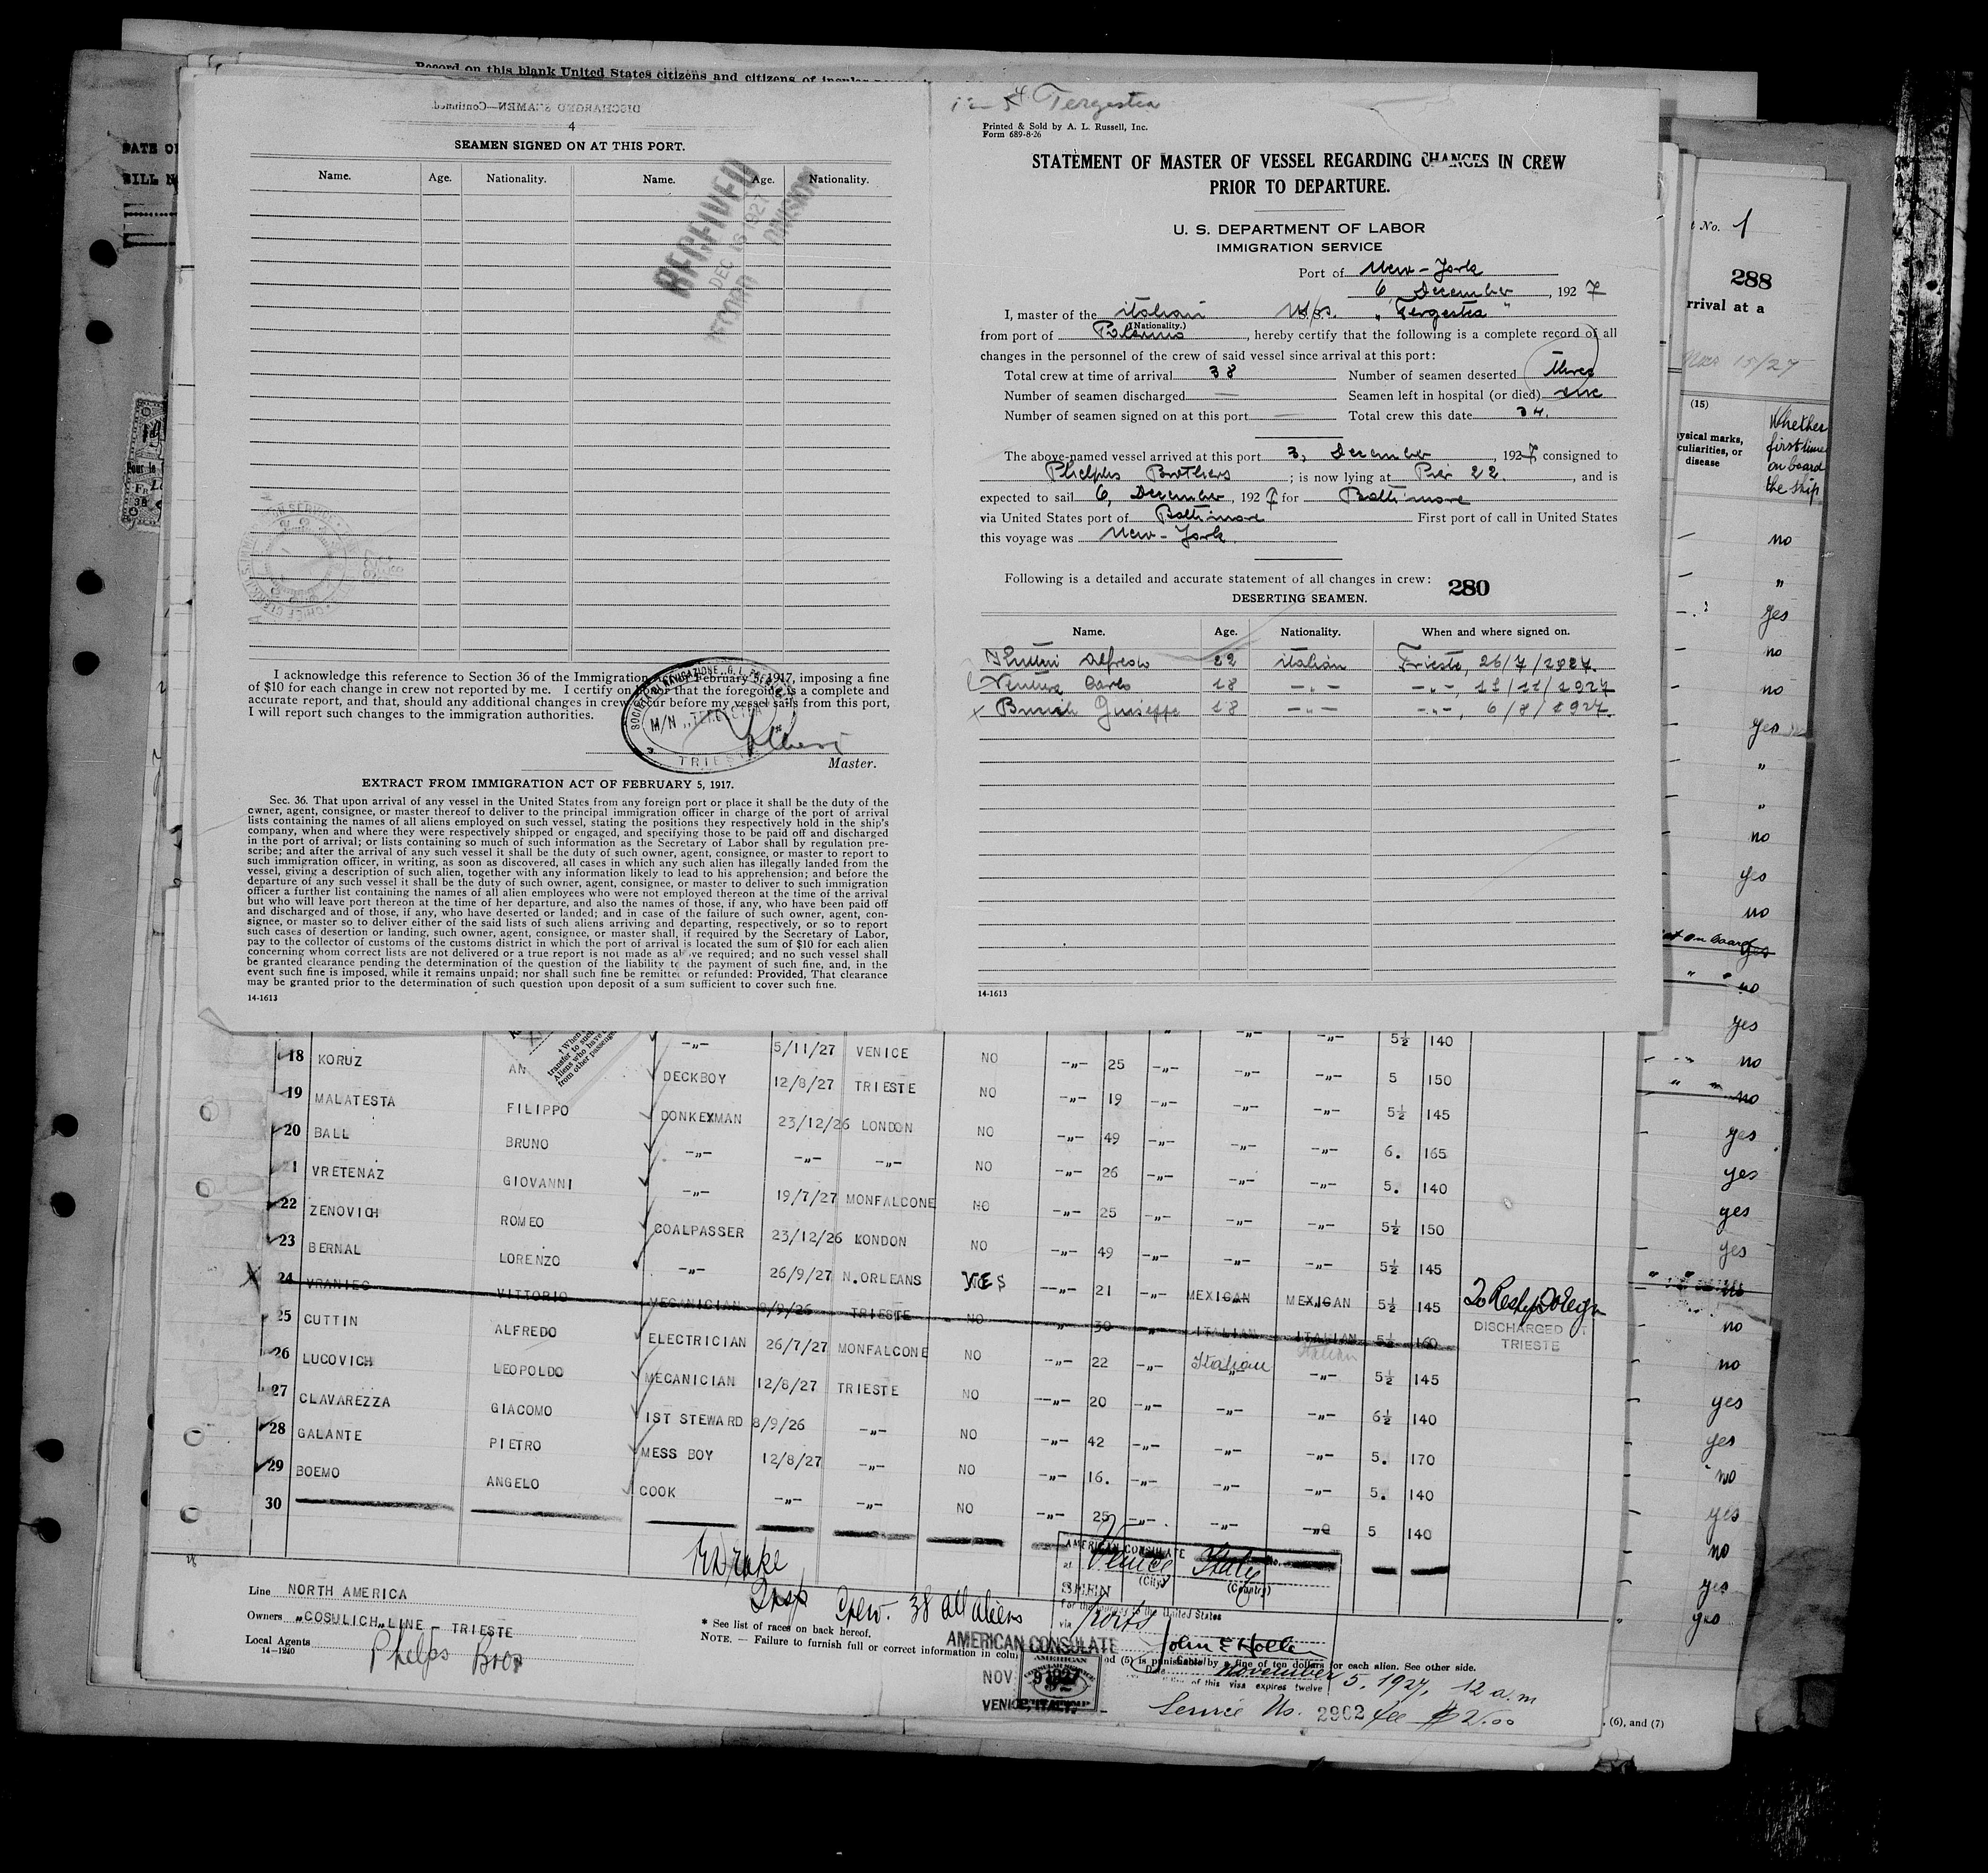 Record on this blank United States citizens and citizens of insular
DATE OF
BILL
DISCHARGED SEAMEN—Continued.
4
SEAMEN SIGNED ON AT THIS PORT.
Name. Age. Nationality. Name. Age. Nationality.
RECEIVED
DEC 16 1927
DIVISION
I acknowledge this reference to Section 36 of the Immigration Act of February 5, 1917, imposing a fine
of $10 for each change in crew not reported by me. I certify on honor that the foregoing is a complete and
accurate report, and that, should any additional changes in crew occur before my vessel sails from this port,
I will report such changes to the immigration authorities.
M/N „TERGESTEA"
TRIESTE
Master.
EXTRACT FROM IMMIGRATION ACT OF FEBRUARY 5, 1917.
Sec. 36. That upon arrival of any vessel in the United States from any foreign port or place it shall be the duty of the
owner, agent, consignee, or master thereof to deliver to the principal immigration officer in charge of the port of arrival
lists containing the names of all aliens employed on such vessel, stating the positions they respectively hold in the ship's
company, when and where they were respectively shipped or engaged, and specifying those to be paid off and discharged
in the port of arrival; or lists containing so much of such information as the Secretary of Labor shall by regulation pre-
scribe; and after the arrival of any such vessel it shall be the duty of such owner, agent, consignee, or master to report to
such immigration officer, in writing, as soon as discovered, all cases in which any such alien has illegally landed from the
vessel, giving a description of such alien, together with any information likely to lead to his apprehension; and before the
departure of any such vessel it shall be the duty of such owner, agent, consignee, or master to deliver to such immigration
officer a further list containing the names of all alien employees who were not employed thereon at the time of the arrival
but who will leave port thereon at the time of her departure, and also the names of those, if any, who have been paid off
and discharged and of those, if any, who have deserted or landed; and in case of the failure of such owner, agent, con-
signee, or master so to deliver either of the said lists of such aliens arriving and departing, respectively, or so to report
such cases of desertion or landing, such owner, agent, consignee, or master shall, if required by the Secretary of Labor,
pay to the collector of customs of the customs district in which the port of arrival is located the sum of $10 for each alien
concerning whom correct lists are not delivered or a true report is not made as above required; and no such vessel shall
be granted clearance pending the determination of the question of the liability to the payment of such fine, and, in the
event such fine is imposed, while it remains unpaid; nor shall such fine be remitted or refunded: Provided, That clearance
may be granted prior to the determination of such question upon deposit of a sum sufficient to cover such fine.
14-1613
Tergestea
Printed & Sold by A. L. Russell, Inc.
Form 689-8-26
STATEMENT OF MASTER OF VESSEL REGARDING CHANGES IN CREW
PRIOR TO DEPARTURE.
U. S. DEPARTMENT OF LABOR
IMMIGRATION SERVICE
Port of New-York
6, December, 1927
I, master of the italian M/s. „Tergestea"
(Nationality.)
from port of Palermo, hereby certify that the following is a complete record of all
changes in the personnel of the crew of said vessel since arrival at this port:
Total crew at time of arrival 38 Number of seamen deserted three
Number of seamen discharged — Seamen left in hospital (or died) one
Number of seamen signed on at this port — Total crew this date 34.
The above-named vessel arrived at this port 3, December, 1927 consigned to
Phelphs Brothers; is now lying at Pier 22., and is
expected to sail 6, December, 1927 for Baltimore
via United States port of Baltimore First port of call in United States
this voyage was New-York
Following is a detailed and accurate statement of all changes in crew: 280
DESERTING SEAMEN.
Name. Age. Nationality. When and where signed on.
Alfredo 22 italian Trieste, 26/7/1927.
Ventura Carlo 18 —„— —„—, 11/11/1927
Giuseppe 18 —„— —„—, 6/8/1927.
14-1613
No. 1
288
rrival at a
15/27
(15)
ysical marks,
culiarities, or
disease
Whether
first time
on board
the ship
no
"
yes
no
no
yes
"
"
no
yes
no
not on board yes
" " no
yes
no
" " no
yes
yes
yes
yes
no
no
no
yes
yes
no
yes
no
yes
yes
—„— 5/11/27 VENICE —„— —„— 5½ 140
18 KORUZ AN DECKBOY 12/8/27 TRIESTE NO —„— 25 —„— —„— —„— 5 150
19 MALATESTA FILIPPO DONKEXMAN 23/12/26 LONDON NO —„— 19 —„— —„— —„— 5½ 145
20 BALL BRUNO —„— —„— —„— NO —„— 49 —„— —„— —„— 6. 165
21 VRETENAZ GIOVANNI —„— 19/7/27 MONFALCONE NO —„— 26 —„— —„— —„— 5. 140
22 ZENOVICH ROMEO COALPASSER 23/12/26 LONDON NO —„— 25 —„— —„— —„— 5½ 150
23 BERNAL LORENZO —„— 26/9/27 N.ORLEANS NO —„— 49 —„— —„— —„— 5½ 145
24 VRANIEC VITTORIO MECANICIAN 8/9/26 TRIESTE YES —„— 21 —„— MEXICAN MEXICAN 5½ 145
NO „ 30 „ ITALIAN ITALIAN 5½ 160 DISCHARGED AT TRIESTE
25 CUTTIN ALFREDO ELECTRICIAN 26/7/27 MONFALCONE NO —„— 22 —„— Italian Italian —„— 5½ 145
26 LUCOVICH LEOPOLDO MECANICIAN 12/8/27 TRIESTE NO —„— 20 —„— —„— —„— 6½ 140
27 CLAVAREZZA GIACOMO 1ST STEWARD 8/9/26 —„— NO —„— 42 —„— —„— —„— 5. 170
28 GALANTE PIETRO MESS BOY 12/8/27 —„— NO —„— 16. —„— —„— —„— 5. 140
29 BOEMO ANGELO COOK —„— —„— NO —„— 25 —„— —„— —„— 5 140
30
Drake
Insp Crew. 38 all aliens
Line NORTH AMERICA
Owners „COSULICH„LINE - TRIESTE
Local Agents Phelps Bros
14—1240
* See list of races on back hereof.
NOTE. — Failure to furnish full or correct information in colu od (5) is punishable by a fine of ten dollars for each alien. See other side.
AMERICAN CONSULATE
at Venice Italy
(City) (Country)
SEEN
For the journey to the United States
via Ports
John E Holler
Date November 5, 1927, 12 a.m
of this visa expires twelve
Service No. 2902 fee $2.00
AMERICAN CONSULATE
NOV 9 1927
VENICE, ITALY.
, (6), and (7)